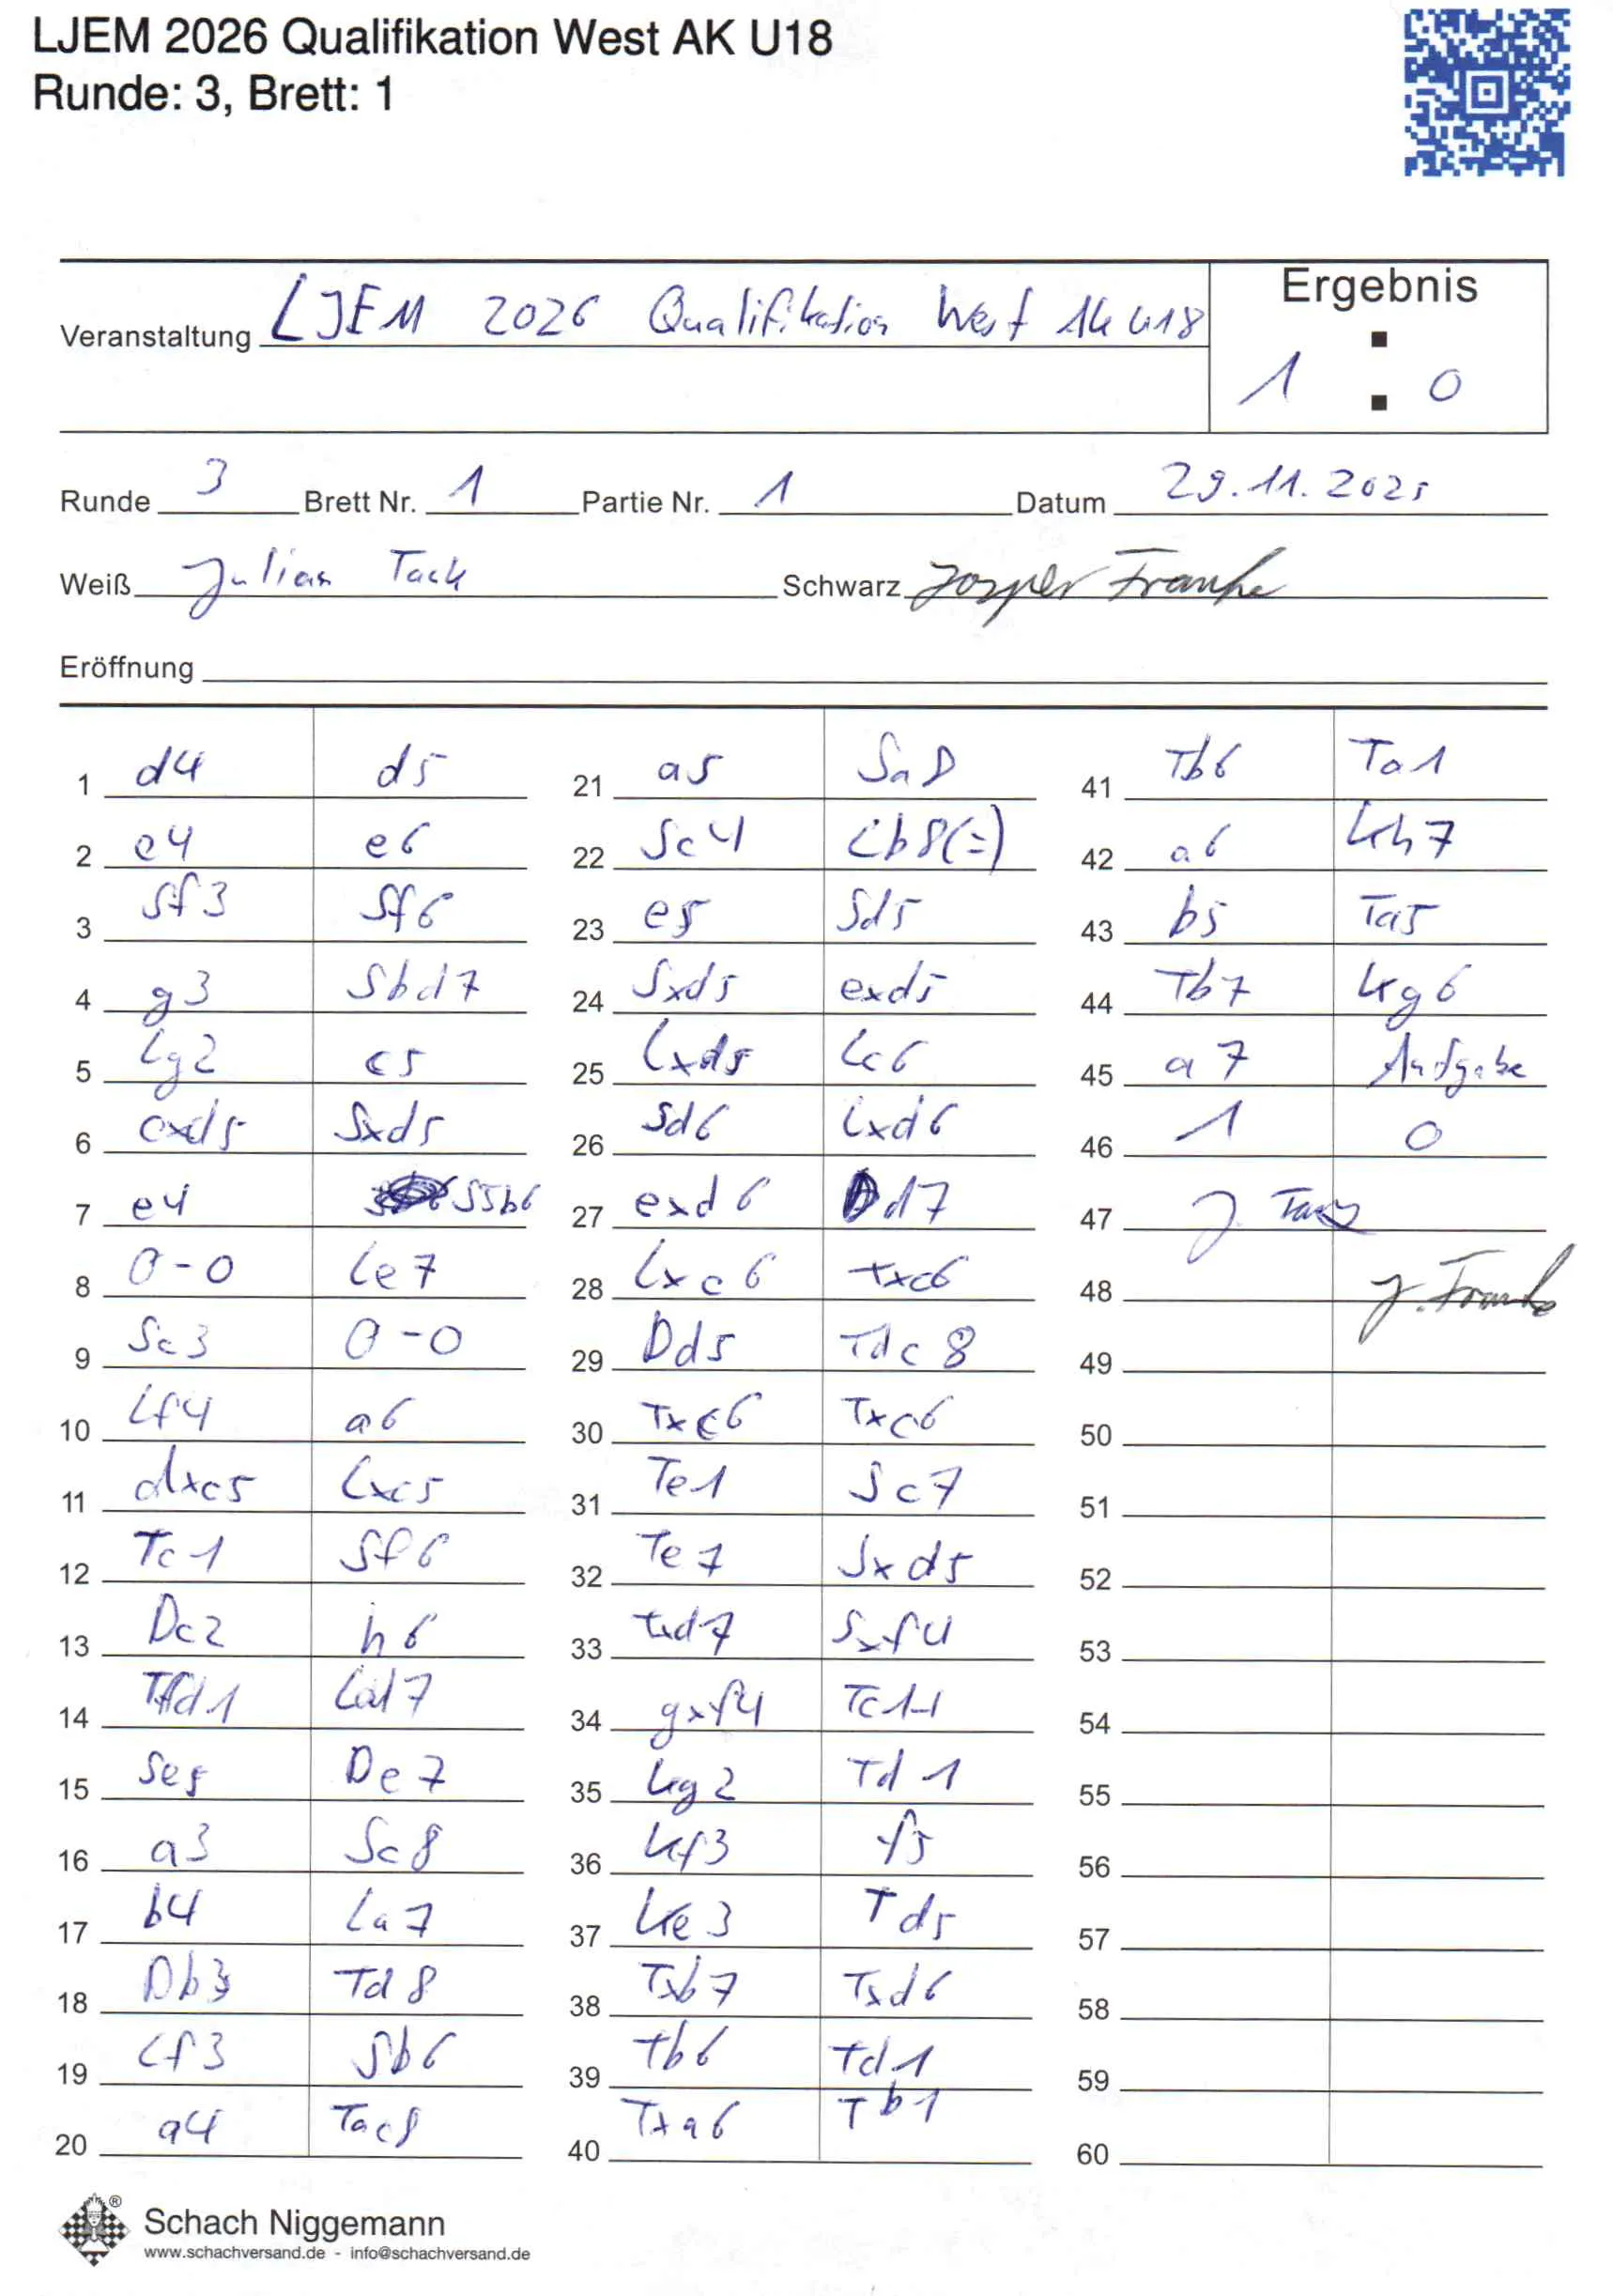 LJEM 2026 Qualifikation West AK U18
Runde: 3, Brett: 1
Veranstaltung LJEM 2026 Qualifikation West AK U18
Ergebnis
1 : 0
Runde 3 Brett Nr. 1 Partie Nr. 1 Datum 29.11.2025
Weiß Julian Tack Schwarz Jasper Franke
Eröffnung
1 d4 d5
2 e4 e6
3 Sf3 Sf6
4 g3 Sbd7
5 Lg2 c5
6 cxd5 Sxd5
7 e4 S5b6
8 0-0 Le7
9 Sc3 0-0
10 Lf4 a6
11 dxc5 Lxc5
12 Tc1 Sf6
13 Dc2 h6
14 Tfd1 Ld7
15 Se5 De7
16 a3 Sc8
17 b4 La7
18 Db3 Td8
19 Lf3 Sb6
20 a4 Tac8
21 a5 Sa8
22 Sc4 Lb8(=)
23 e5 Sd5
24 Sxd5 exd5
25 Lxd5 Lc6
26 Sd6 Lxd6
27 exd6 Dd7
28 Lxc6 Txc6
29 Dd5 Tdc8
30 Txc6 Txc6
31 Te1 Sc7
32 Te7 Sxd5
33 Txd7 Sxf4
34 gxf4 Tc1+
35 Kg2 Td1
36 Kf3 f5
37 Ke3 Td5
38 Txb7 Txd6
39 Tb6 Td1
40 Txa6 Tb1
41 Tb6 Ta1
42 a6 Kh7
43 b5 Ta5
44 Tb7 Kg6
45 a7 Aufgabe
46 1 0
47 J. Tack
48 J. Franke
49
50
51
52
53
54
55
56
57
58
59
60
Schach Niggemann ®
www.schachversand.de - info@schachversand.de